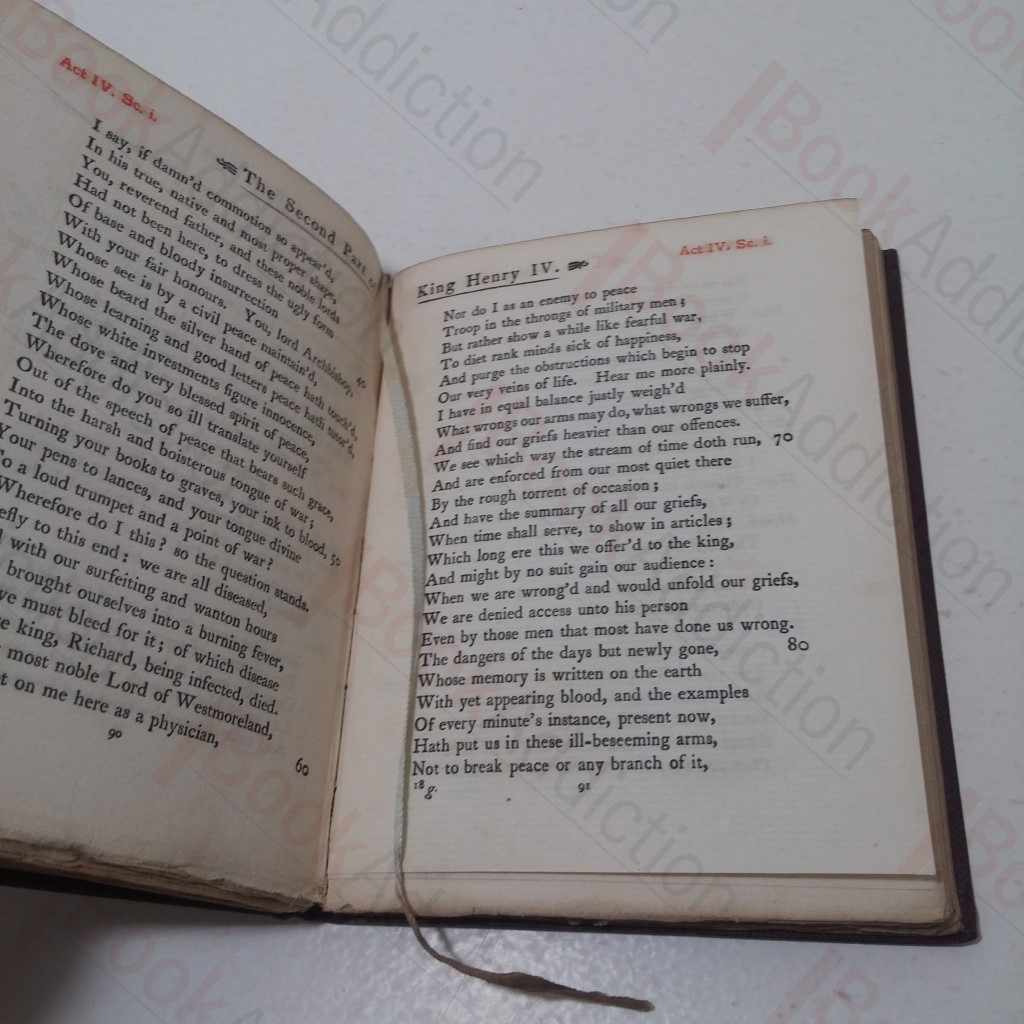 Act IV. Sc. i.
The Second Part of
I say, if damn'd commotion so appear'd,
In his true, native and most proper shape,
You, reverend father, and these noble lords
Had not been here, to dress the ugly form
Of base and bloody insurrection
With your fair honours. You, lord Archbishop,
Whose see is by a civil peace maintain'd, 40
Whose beard the silver hand of peace hath touch'd,
Whose learning and good letters peace hath tutor'd,
Whose white investments figure innocence,
The dove and very blessed spirit of peace,
Wherefore do you so ill translate yourself
Out of the speech of peace that bears such grace,
Into the harsh and boisterous tongue of war;
Turning your books to graves, your ink to blood, 50
Your pens to lances, and your tongue divine
To a loud trumpet and a point of war?
Wherefore do I this? so the question stands.
to this end: we are all diseased,
with our surfeiting and wanton hours
brought ourselves into a burning fever,
we must bleed for it; of which disease
king, Richard, being infected, died.
most noble Lord of Westmoreland,
on me here as a physician, 60
90
King Henry IV.
Act IV. Sc. i.
Nor do I as an enemy to peace
Troop in the throngs of military men;
But rather show a while like fearful war,
To diet rank minds sick of happiness,
And purge the obstructions which begin to stop
Our very veins of life. Hear me more plainly.
I have in equal balance justly weigh'd
What wrongs our arms may do, what wrongs we suffer,
And find our griefs heavier than our offences.
We see which way the stream of time doth run, 70
And are enforced from our most quiet there
By the rough torrent of occasion;
And have the summary of all our griefs,
When time shall serve, to show in articles;
Which long ere this we offer'd to the king,
And might by no suit gain our audience:
When we are wrong'd and would unfold our griefs,
We are denied access unto his person
Even by those men that most have done us wrong.
The dangers of the days but newly gone, 80
Whose memory is written on the earth
With yet appearing blood, and the examples
Of every minute's instance, present now,
Hath put us in these ill-beseeming arms,
Not to break peace or any branch of it,
18 g.
91
Book Addiction